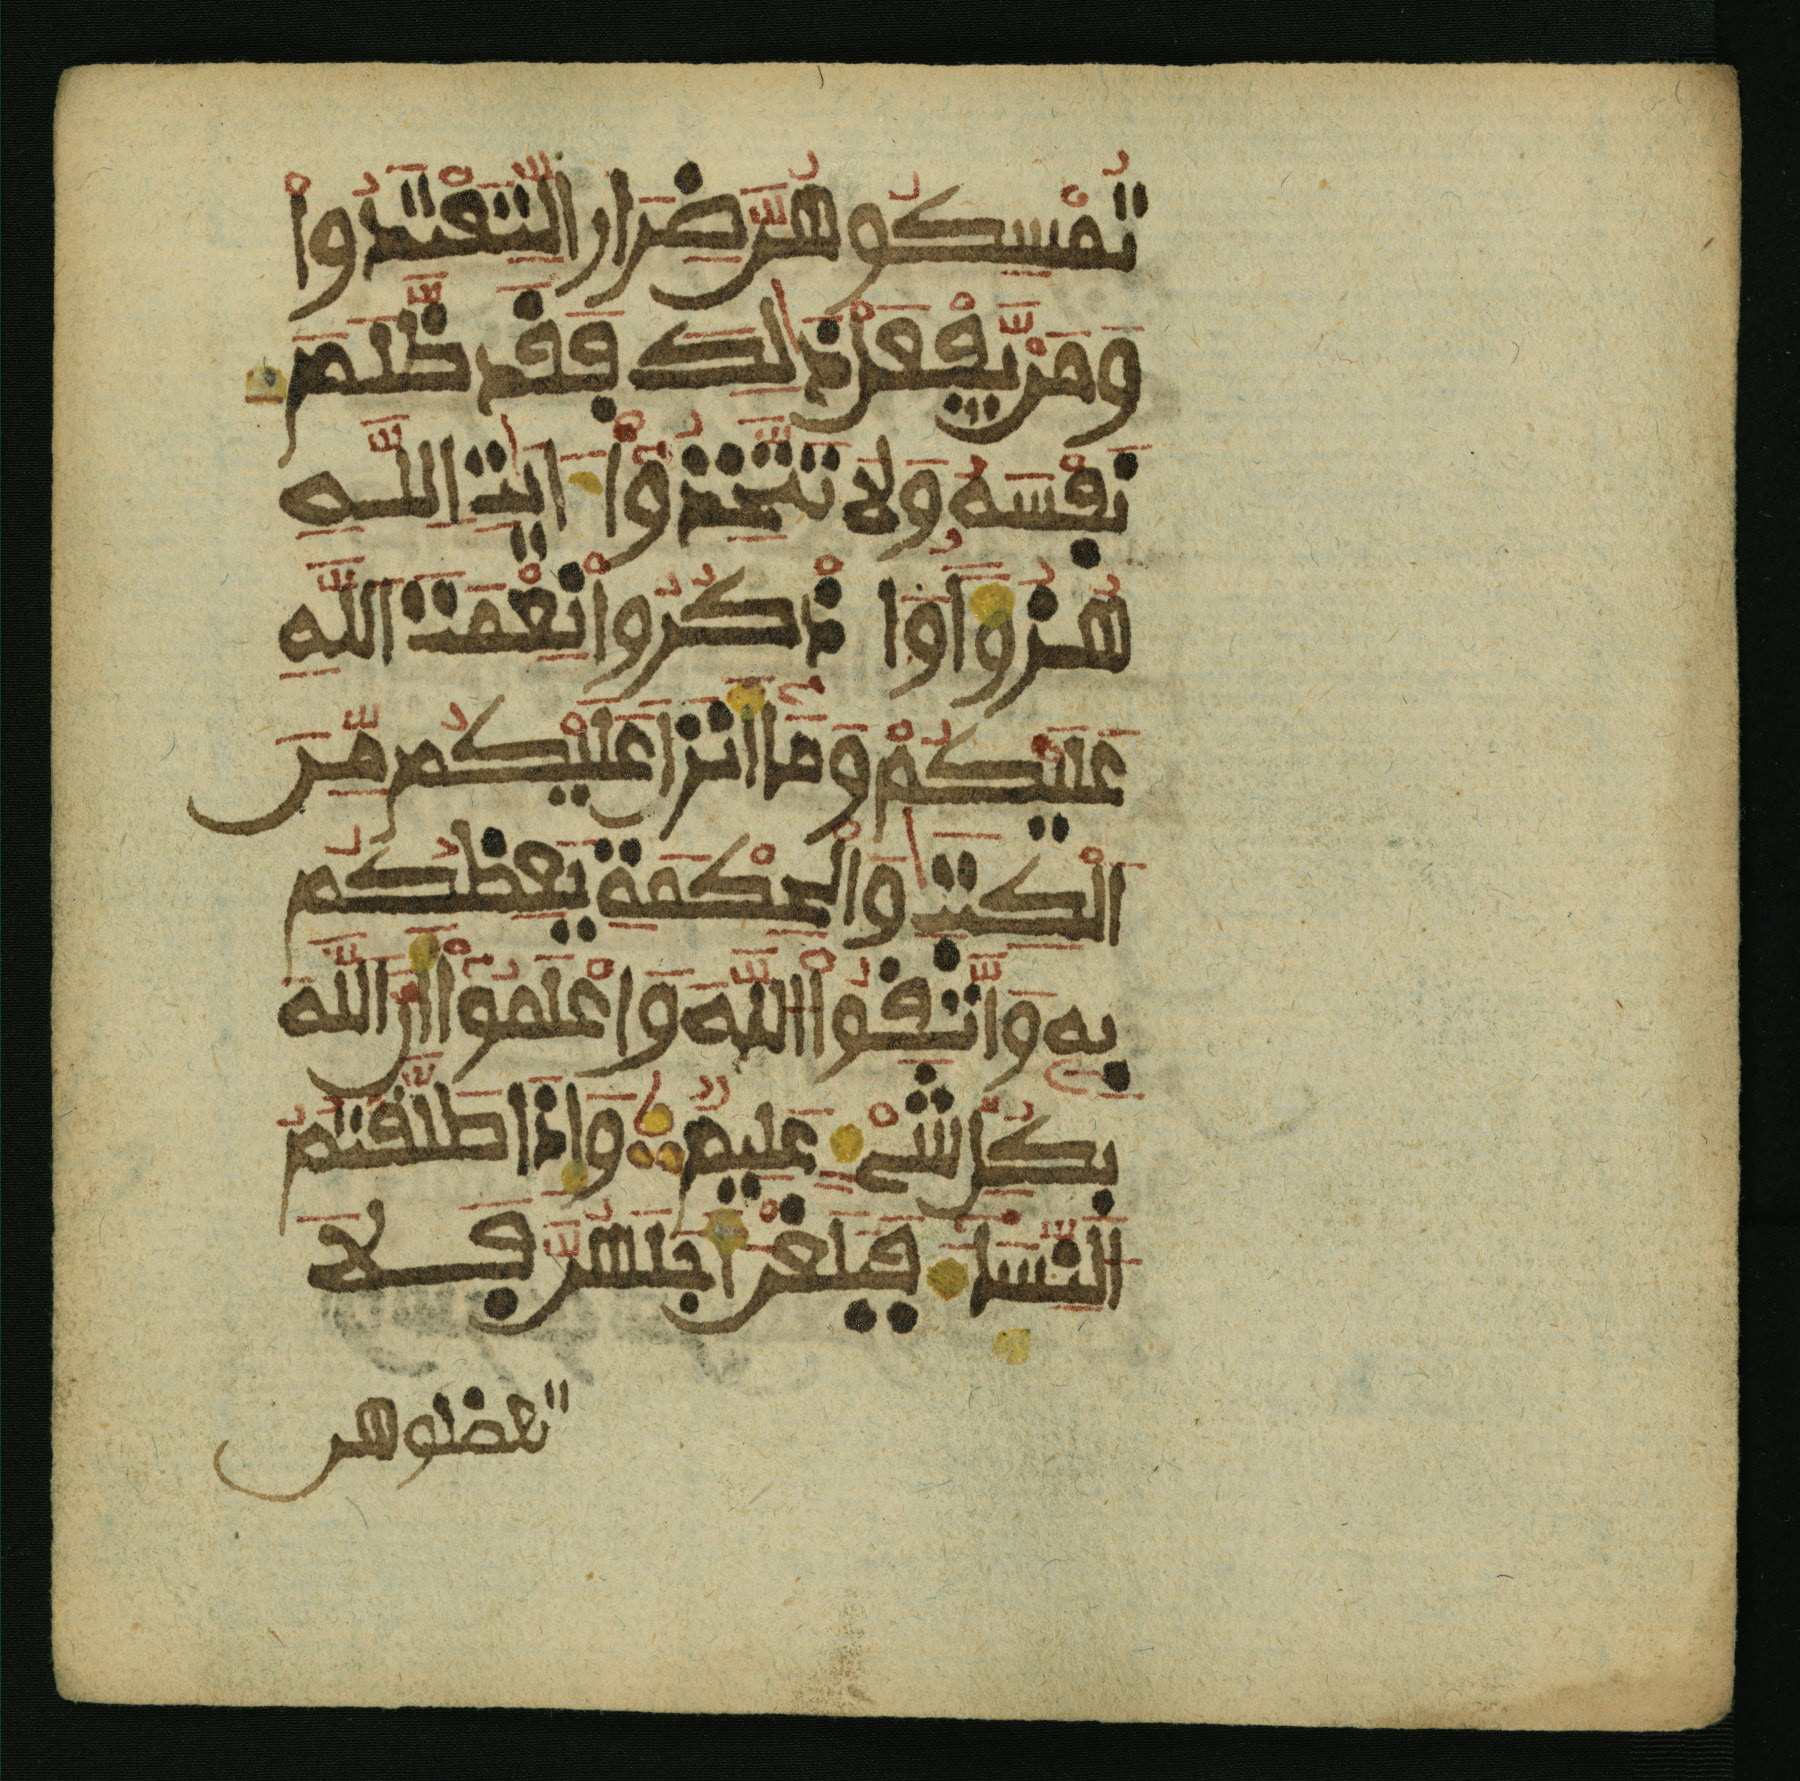 تُمْسِكُوهُنَّ ضِرَارًا لِّتَعْتَدُواْ
وَمَنْ يَّفْعَلْ ذَٰلِكَ فَقَد ظَّلَمَ
نَفْسَهُ وَلَا تَتَّخِذُوٓاْ ءَايَٰتِ اللَّهِ
هُزُؤًا وَاذْكُرُواْ نِعْمَتَ اللَّهِ
عَلَيْكُمْ وَمَآ أَنزَلَ عَلَيْكُم مِّنَ
الْكِتَٰبِ وَالْحِكْمَةِ يَعِظُكُم
بِهِ وَاتَّقُواْ اللَّهَ وَاعْلَمُوٓاْ أَنَّ اللَّهَ
بِكُلِّ شَيْءٍ عَلِيمٌ وَإِذَا طَلَّقْتُمُ
النِّسَآءَ فَبَلَغْنَ أَجَلَهُنَّ فَلَا
تعضلوهن